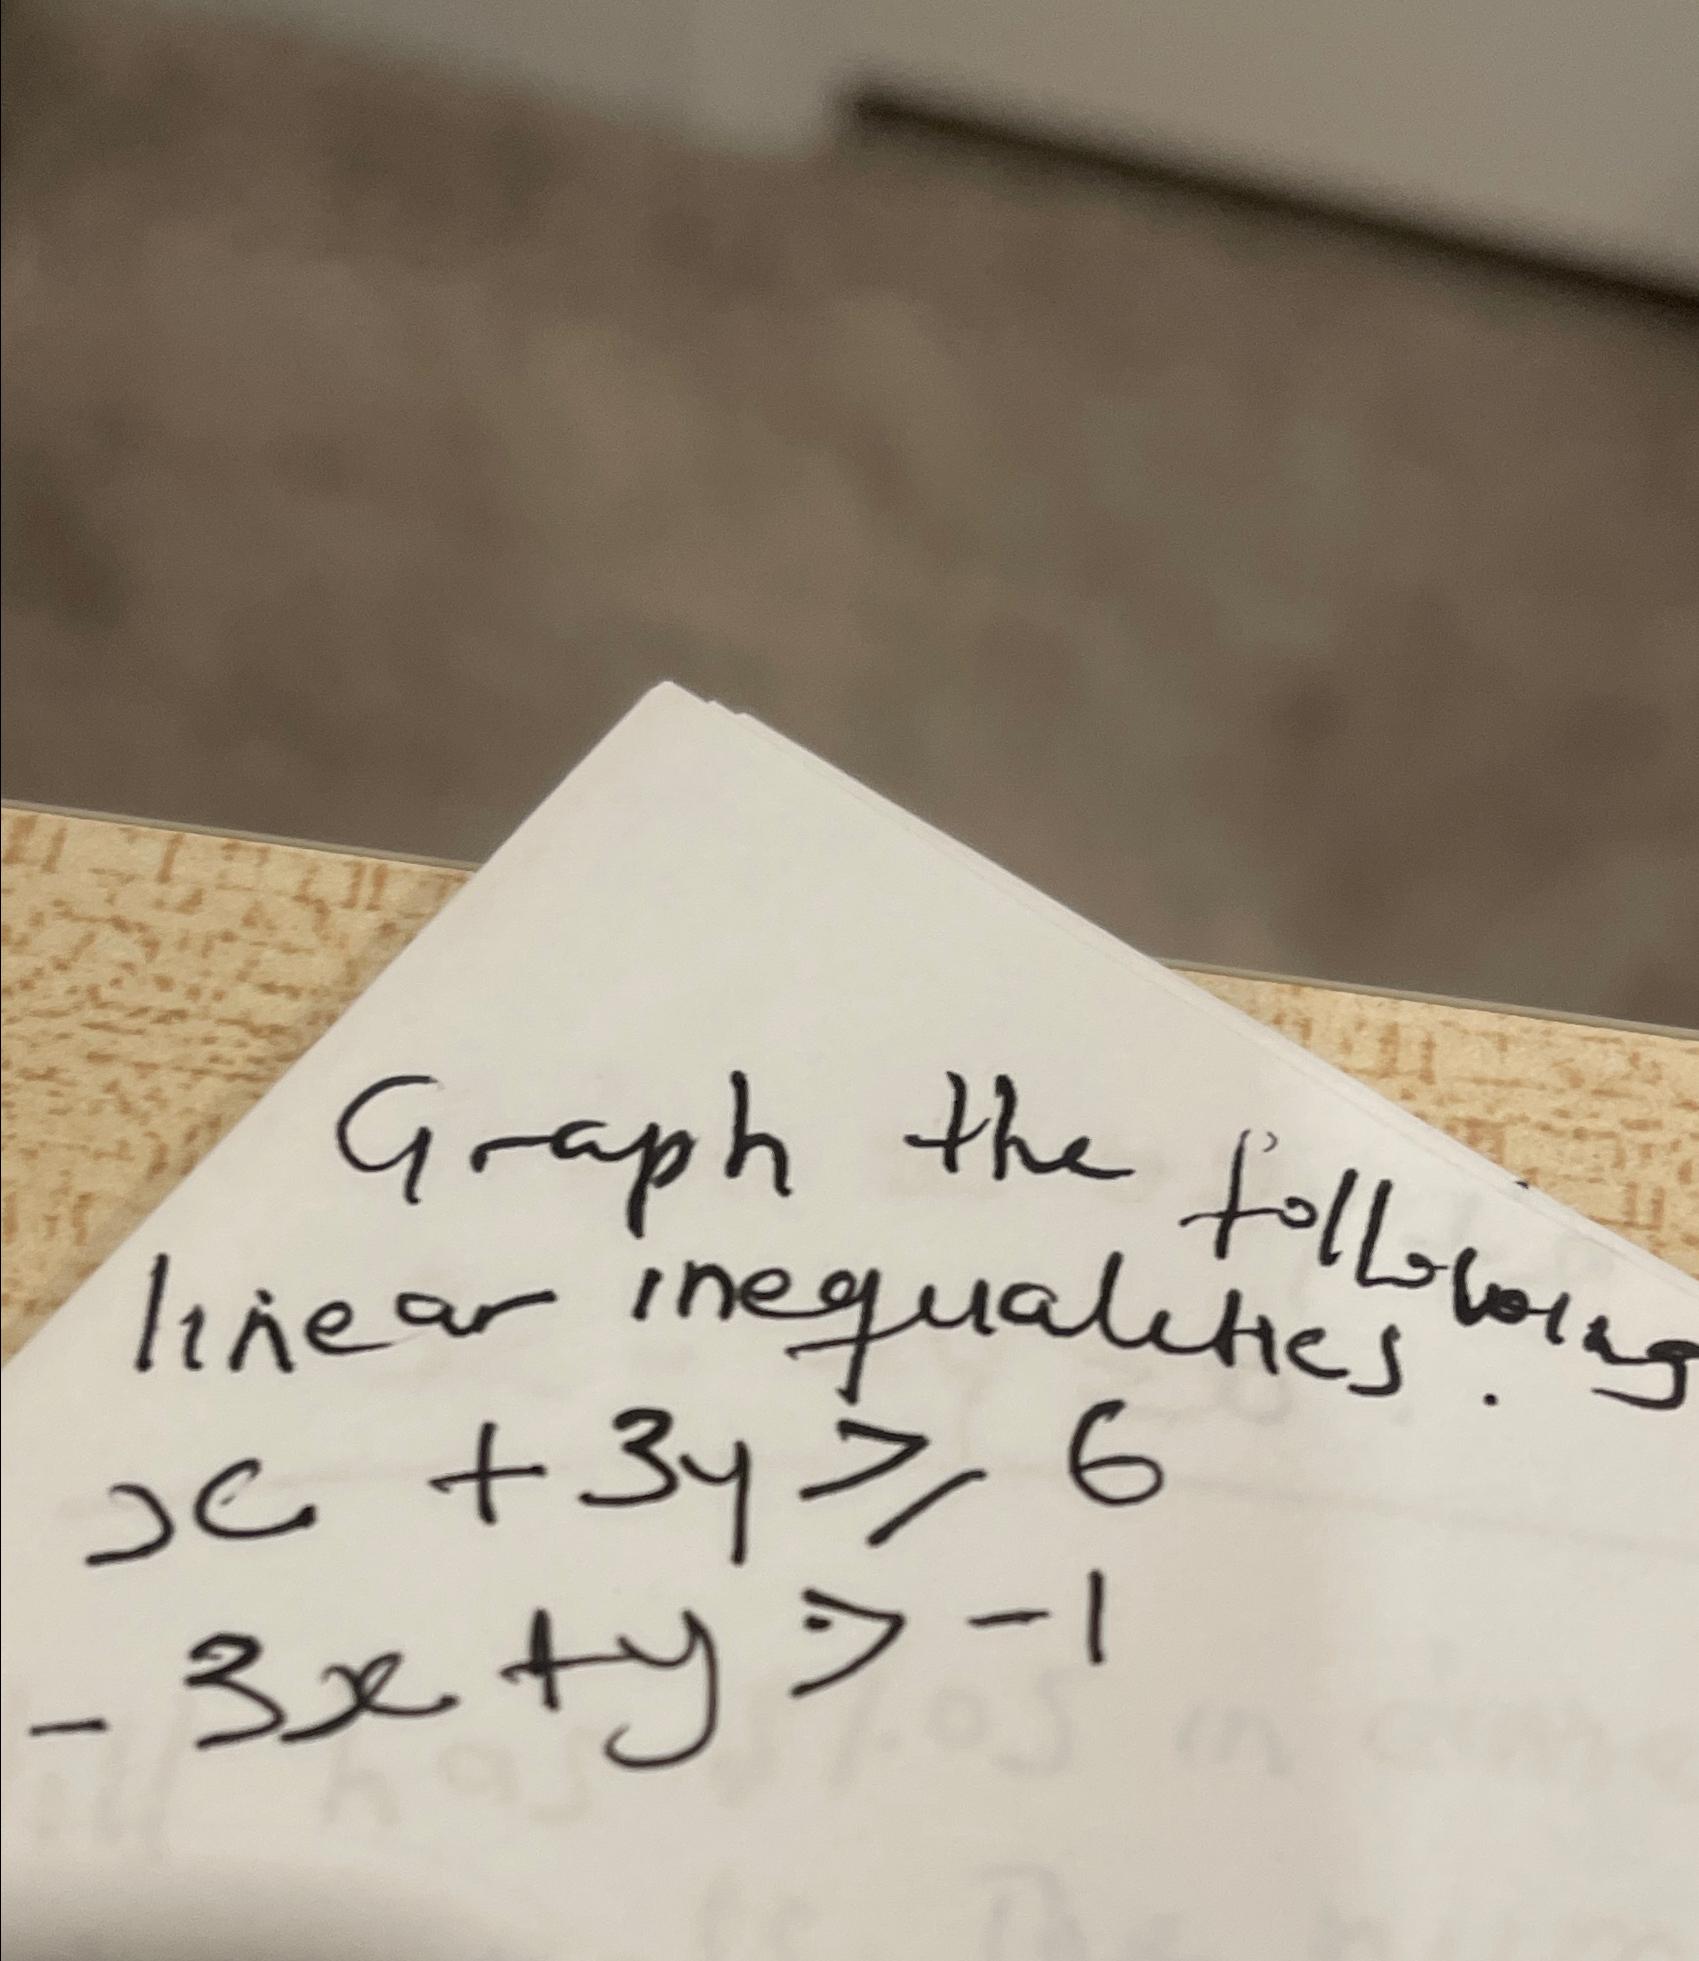 Graph the following
linear inequalities.
x + 3y ⩾ 6
- 3x + y > -1